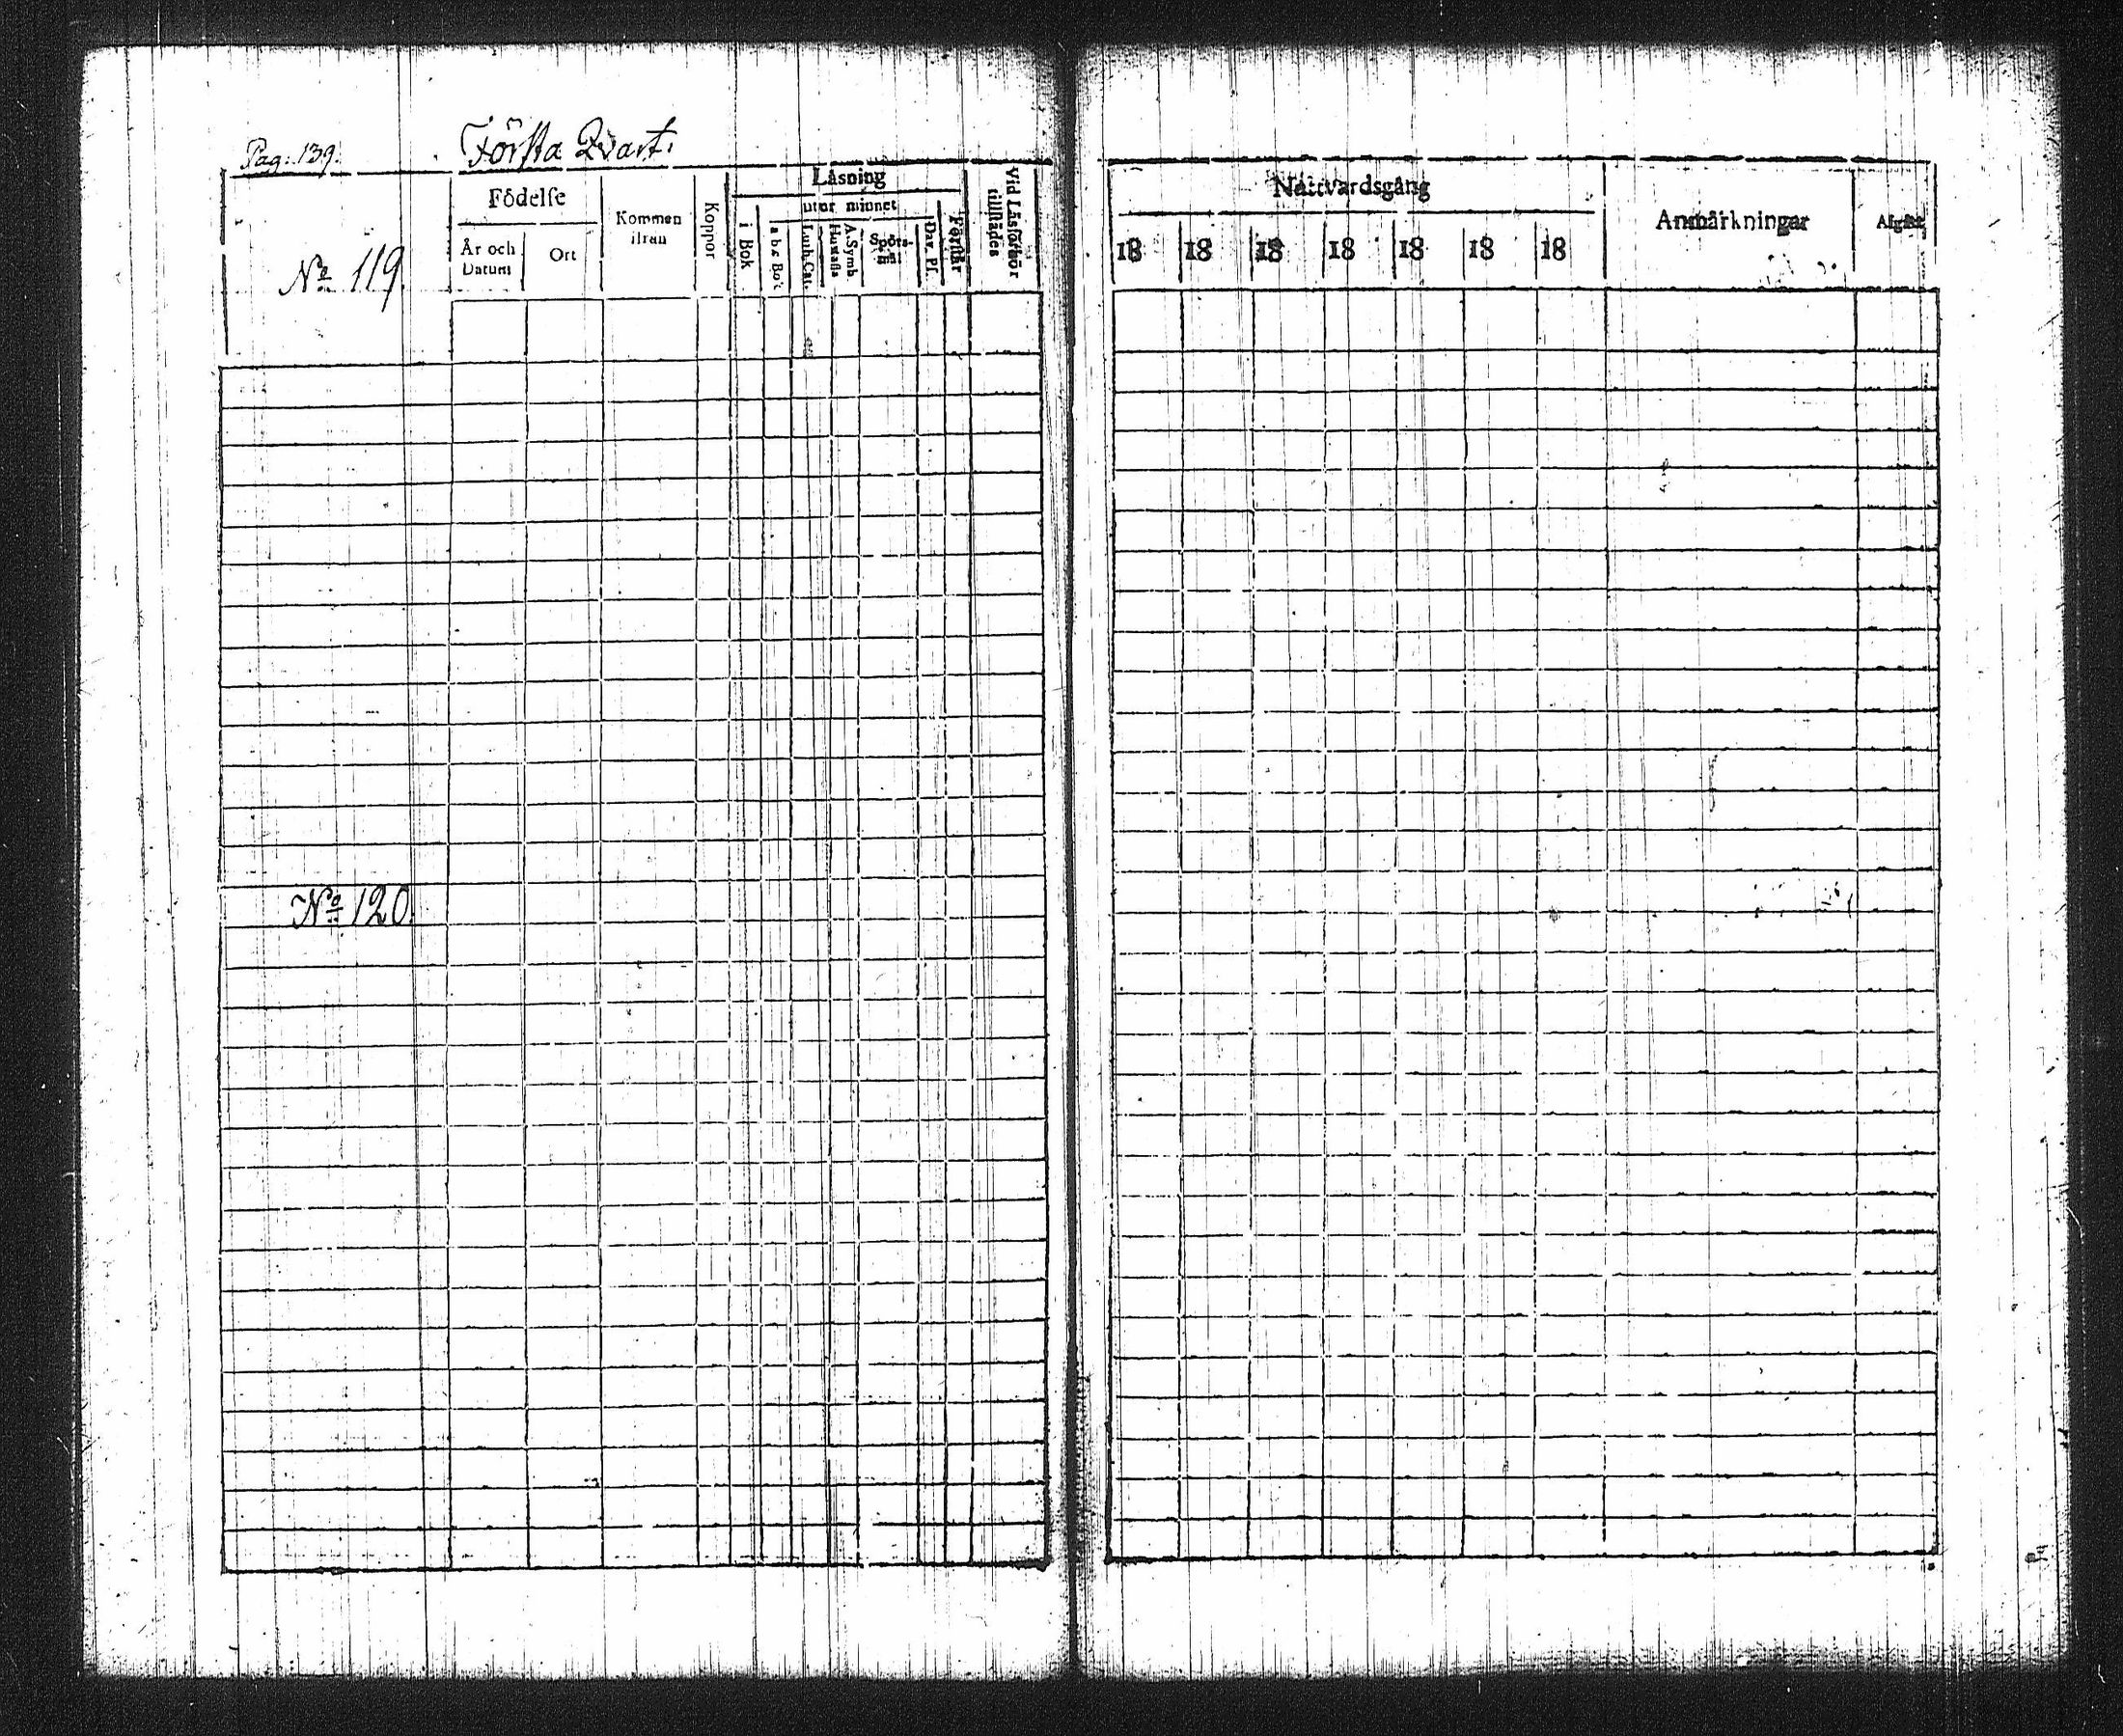 Pag. 139. Första Qvart.
No 119
Födelse
År och Datum
Ort
Kommen ifrån
Koppor
Läsning
utur minnet
i Bok
a b c Bok
Luth. Cat.
A. Symb. Hustafla
Spörs-m
Dav. Ps.
Förstår
Vid Läsförhör tillstädes
Nattvardsgång
18 18 18 18 18 18 18
Anmärkningar
No 120.